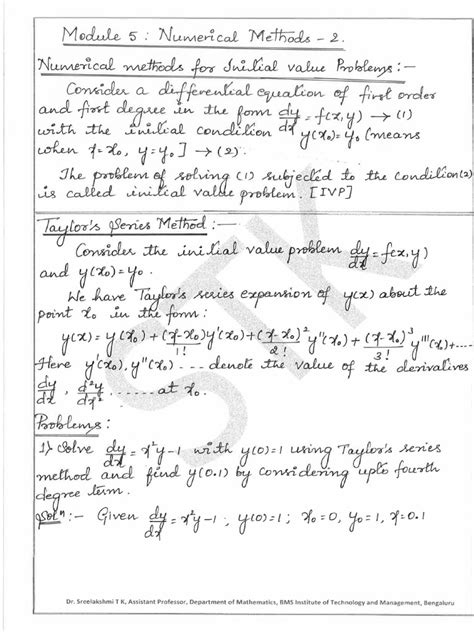 Module 5 : Numerical Methods - 2.
Numerical methods for Initial value Problems :-
Consider a differential equation of first order
and first degree in the form dy/dx = f(x,y) → (1)
with the initial condition y(x₀) = y₀ [means
when x = x₀, y = y₀] → (2).
The problem of solving (1) subjected to the condition (2)
is called initial value problem. [IVP]
Taylor's Series Method :-
Consider the initial value problem dy/dx = f(x,y)
and y(x₀) = y₀.
We have Taylor's series expansion of y(x) about the
point x₀ in the form :
y(x) = y(x₀) + (x-x₀)/1! y'(x₀) + (x-x₀)²/2! y''(x₀) + (x-x₀)³/3! y'''(x₀) + ....
Here y'(x₀), y''(x₀) .... denote the value of the derivatives
dy/dx , d²y/dx² ...... at x₀.
Problems :
1) Solve dy/dx = x²y-1 with y(0)=1 using Taylor's series
method and find y(0.1) by considering upto fourth
degree term.
Solⁿ :- Given dy/dx = x²y-1 ; y(0)=1 ; x₀=0, y₀=1, x=0.1
STK
Dr. Sreelakshmi T K, Assistant Professor, Department of Mathematics, BMS Institute of Technology and Management, Bengaluru